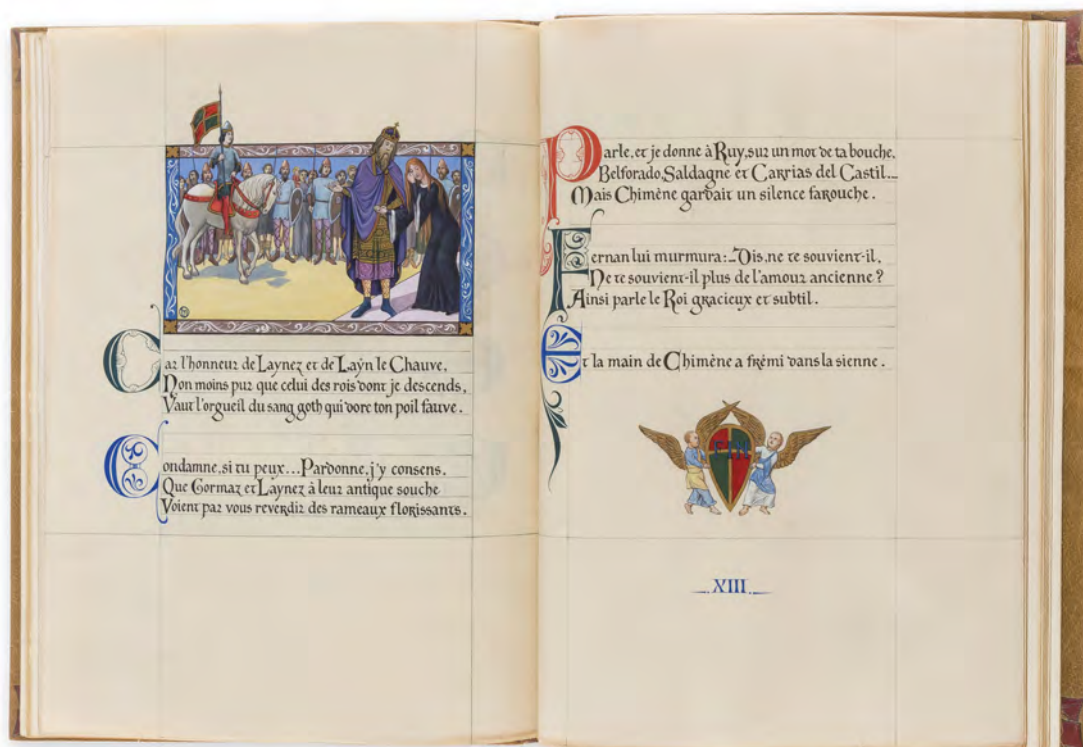 Car l'honneur de Laynez et de Laÿn le Chauve,
Non moins pur que celui des rois dont je descends,
Vaut l'orgueil du sang goth qui dore ton poil fauve.
Condamne, si tu peux... Pardonne, j'y consens.
Que Gormaz et Laynez à leur antique souche
Voient par vous reverdir des rameaux florissants.
Parle, et je donne à Ruy, sur un mot de ta bouche,
Belforado, Saldagne et Carrias del Castil._
Mais Chimène gardait un silence farouche.
Fernan lui murmura:_Dis, ne te souvient-il,
Ne te souvient-il plus de l'amour ancienne?
Ainsi parle le Roi gracieux et subtil.
Et la main de Chimène a frémi dans la sienne.
FIN
XIII